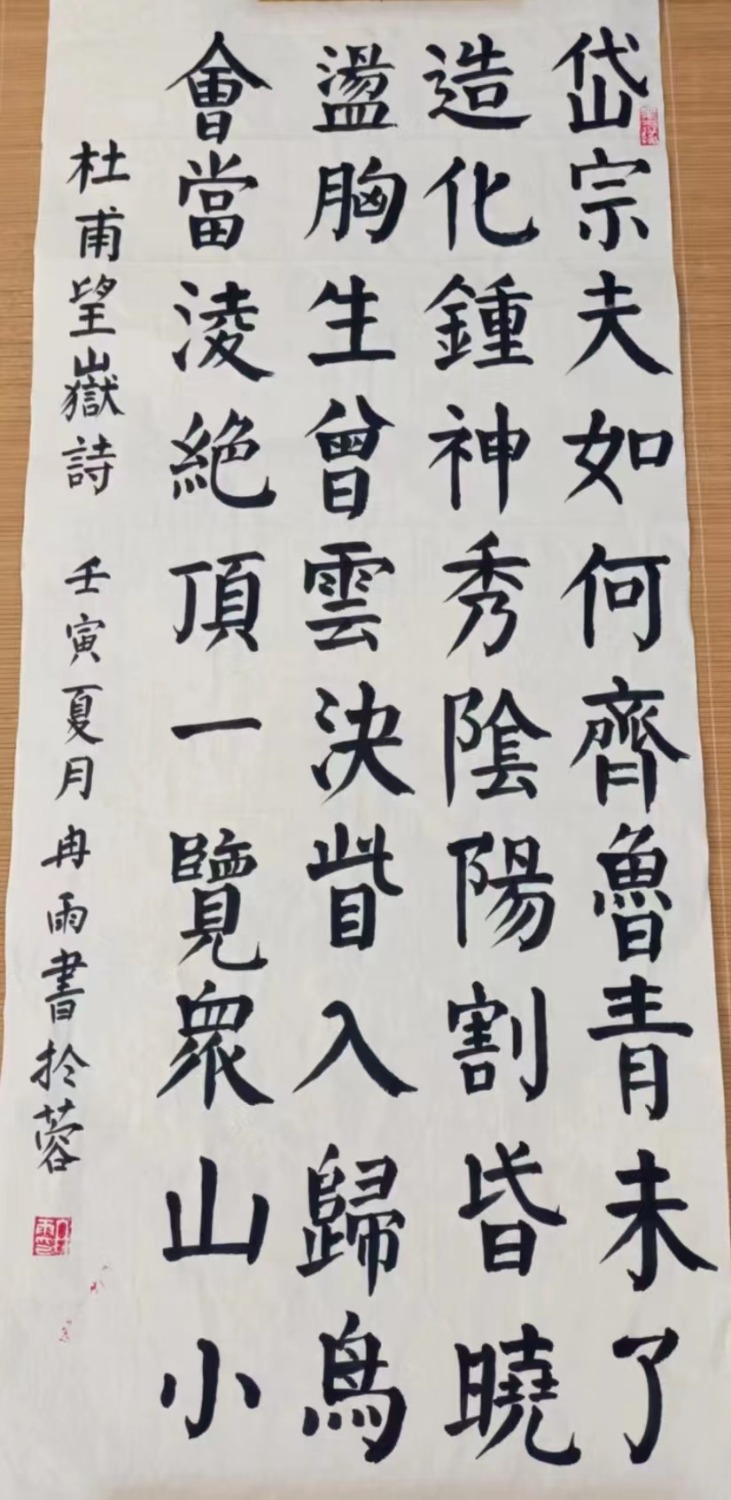 岱宗夫如何齊魯青未了
造化鍾神秀陰陽割昏曉
盪胸生曾雲決眥入歸鳥
會當淩絕頂一覽眾山小
杜甫望嶽詩 壬寅夏月冉雨書於蓉